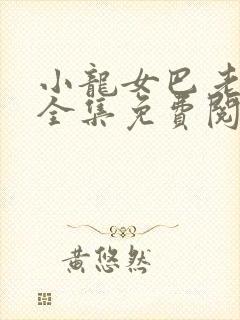 小龍女巴老
全集免費閱
黃悠然